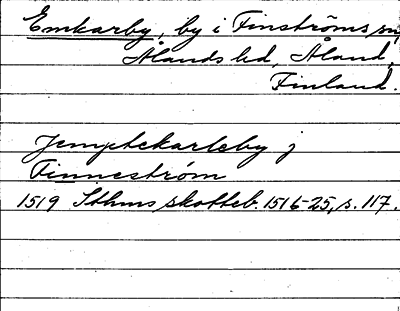 Emkarby, by i Finströms sn,
Ålands led, Åland,
Finland.
Jemptekarleby j
Finneström
1519 Sthms skotteb. 1516-25, s. 117.